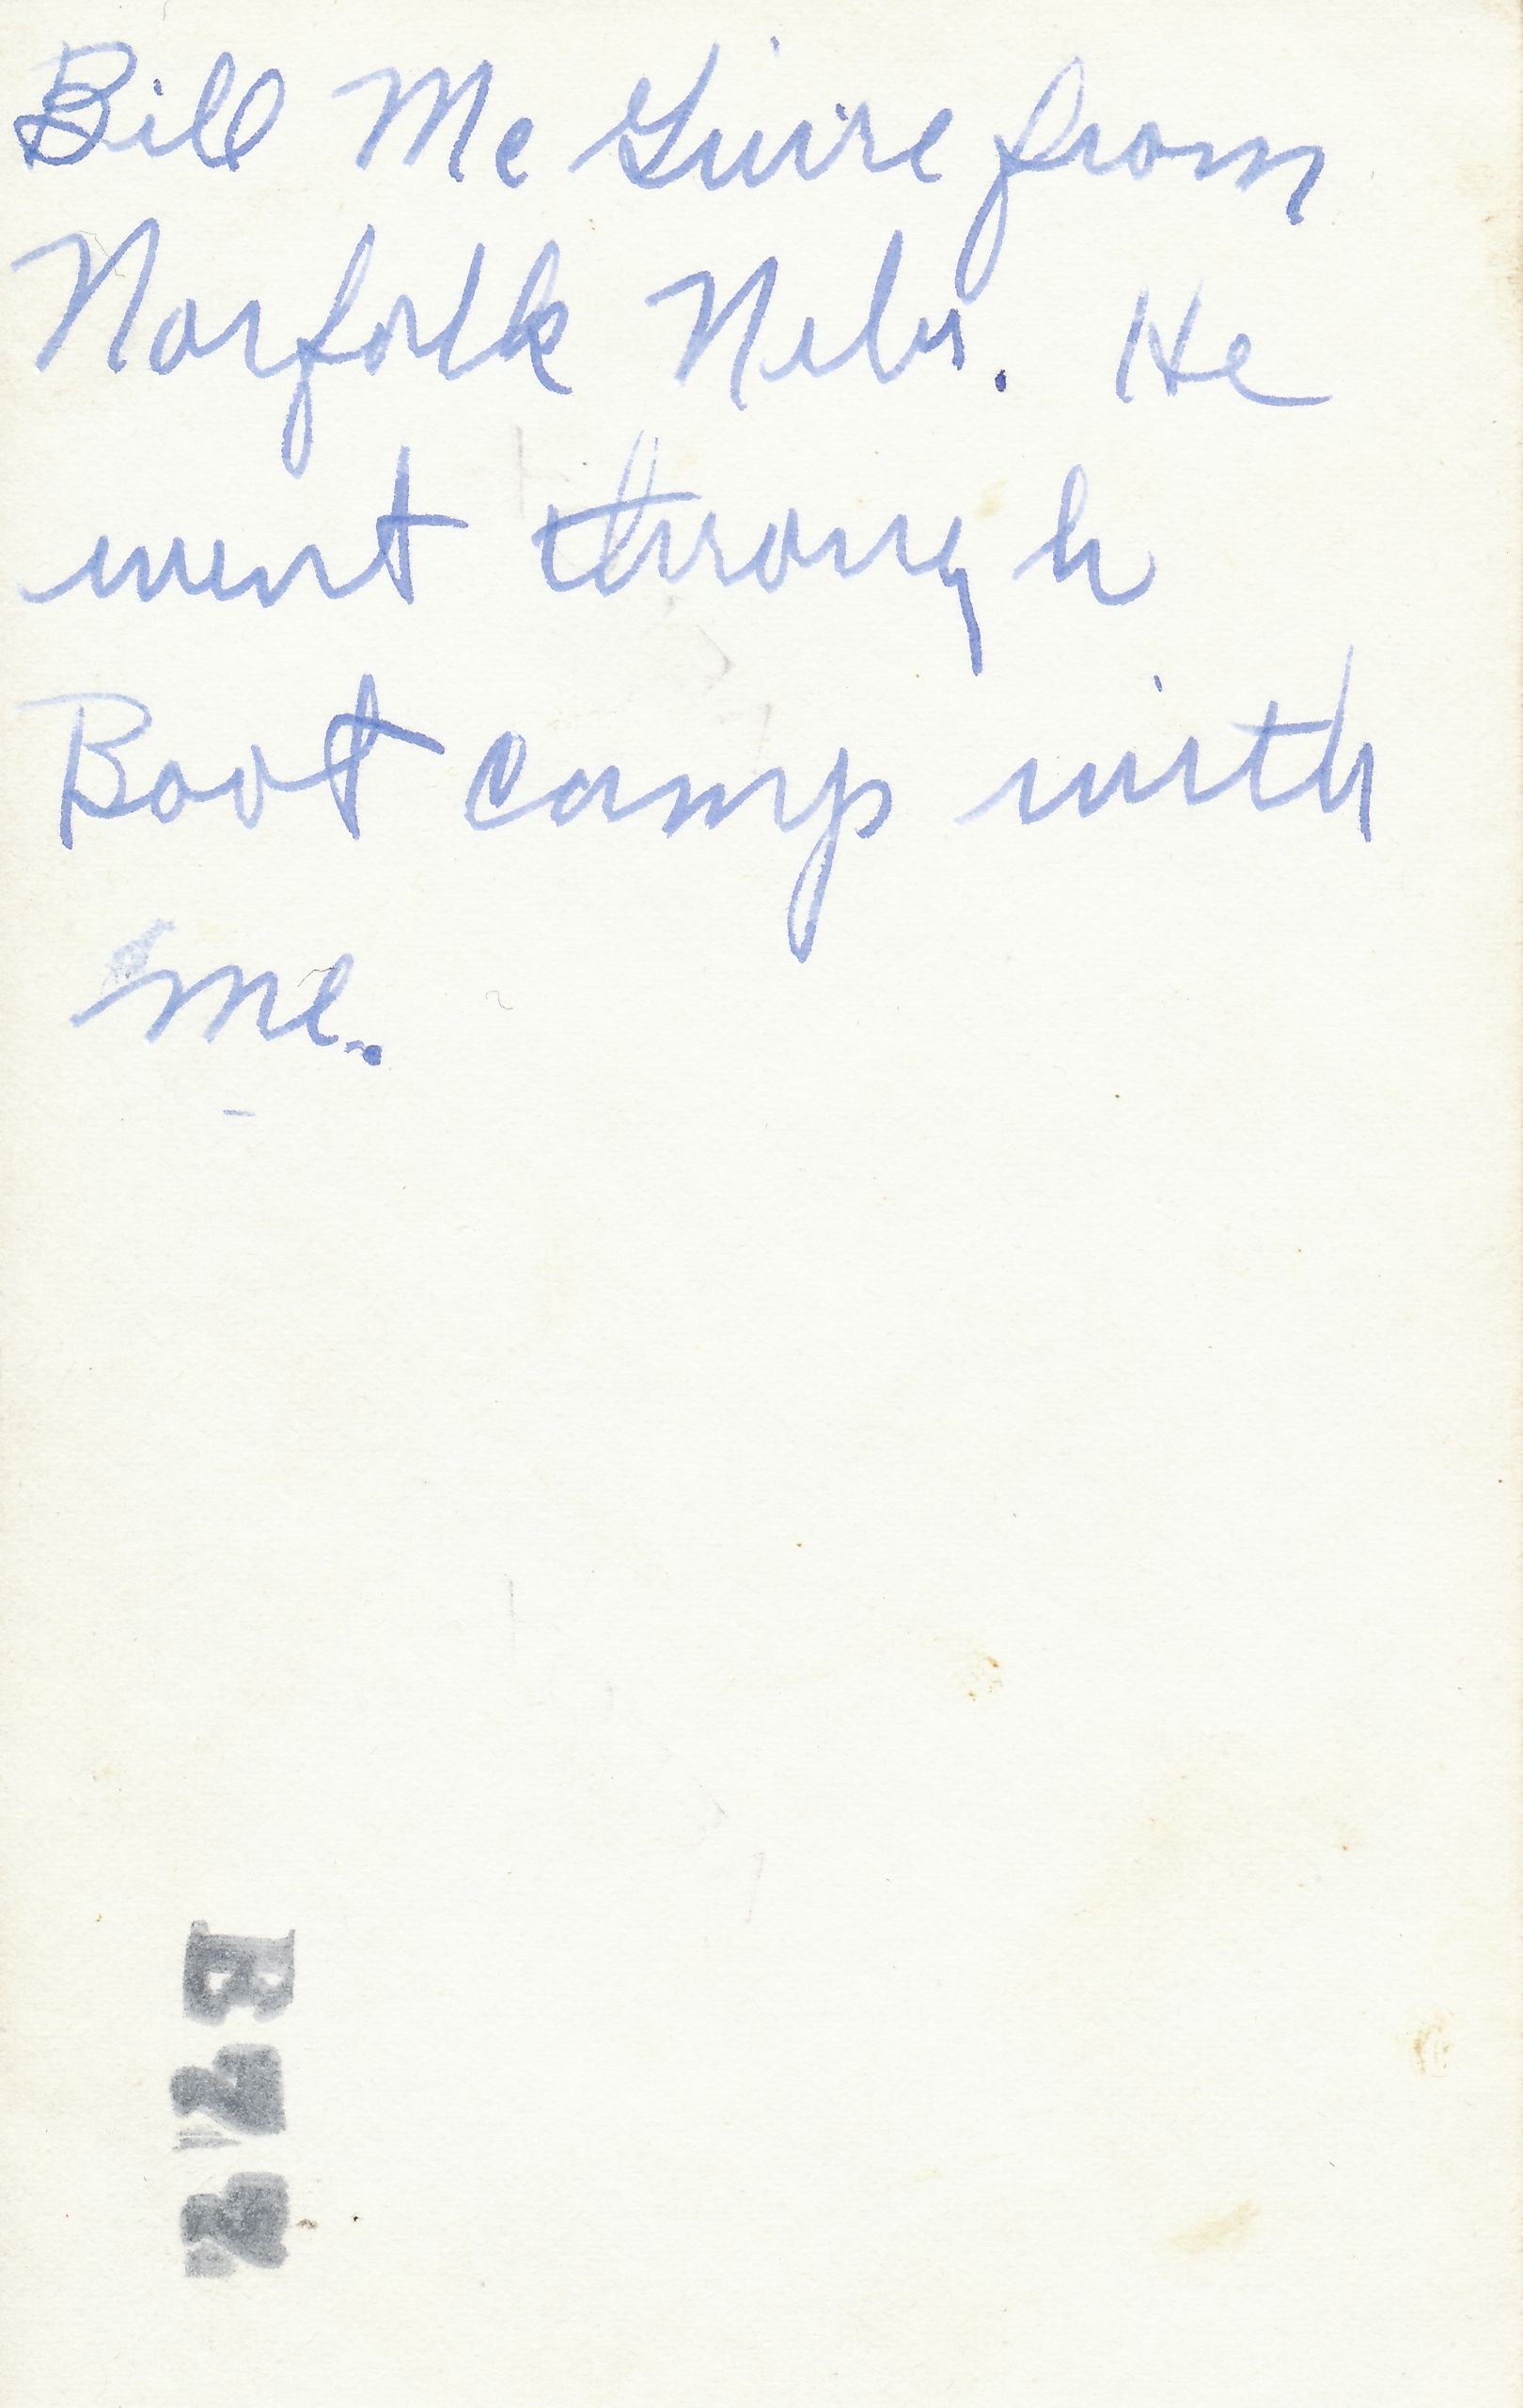 Bill Mc Guire from
Norfolk Nebr. He
went through
Boot camp with
me.
B77